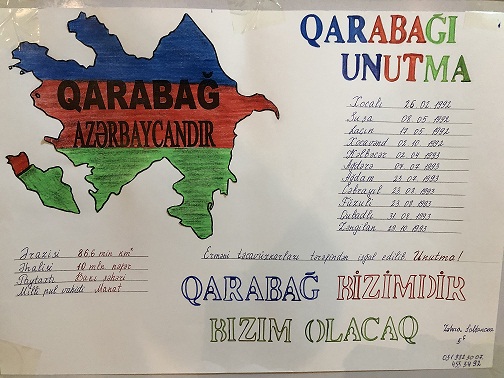 QARABAĞ
AZƏRBAYCANDIR
QARABAĞI
UNUTMA
Xocalı 26 02 1992
Şuşa 08 05 1992
Laçın 17 05 1992
Xocavənd 02 10 1992
Kəlbəcər 02 04 1993
Ağdərə 07 07 1993
Ağdam 23 07 1993
Cəbrayıl 23 08 1993
Füzuli 23 08 1993
Qubadlı 31 08 1993
Zəngilan 29 10 1993
Ərazisi 86,6 min km²
Əhalisi 10 mln nəfər
Paytaxtı Bakı şəhəri
Milli pul vahidi Manat
Erməni təcavüzkarları tərəfindən işğal edilib Unutma!
QARABAĞ BİZİMDİR
BİZİM OLACAQ
5ᵍ
455 54 92